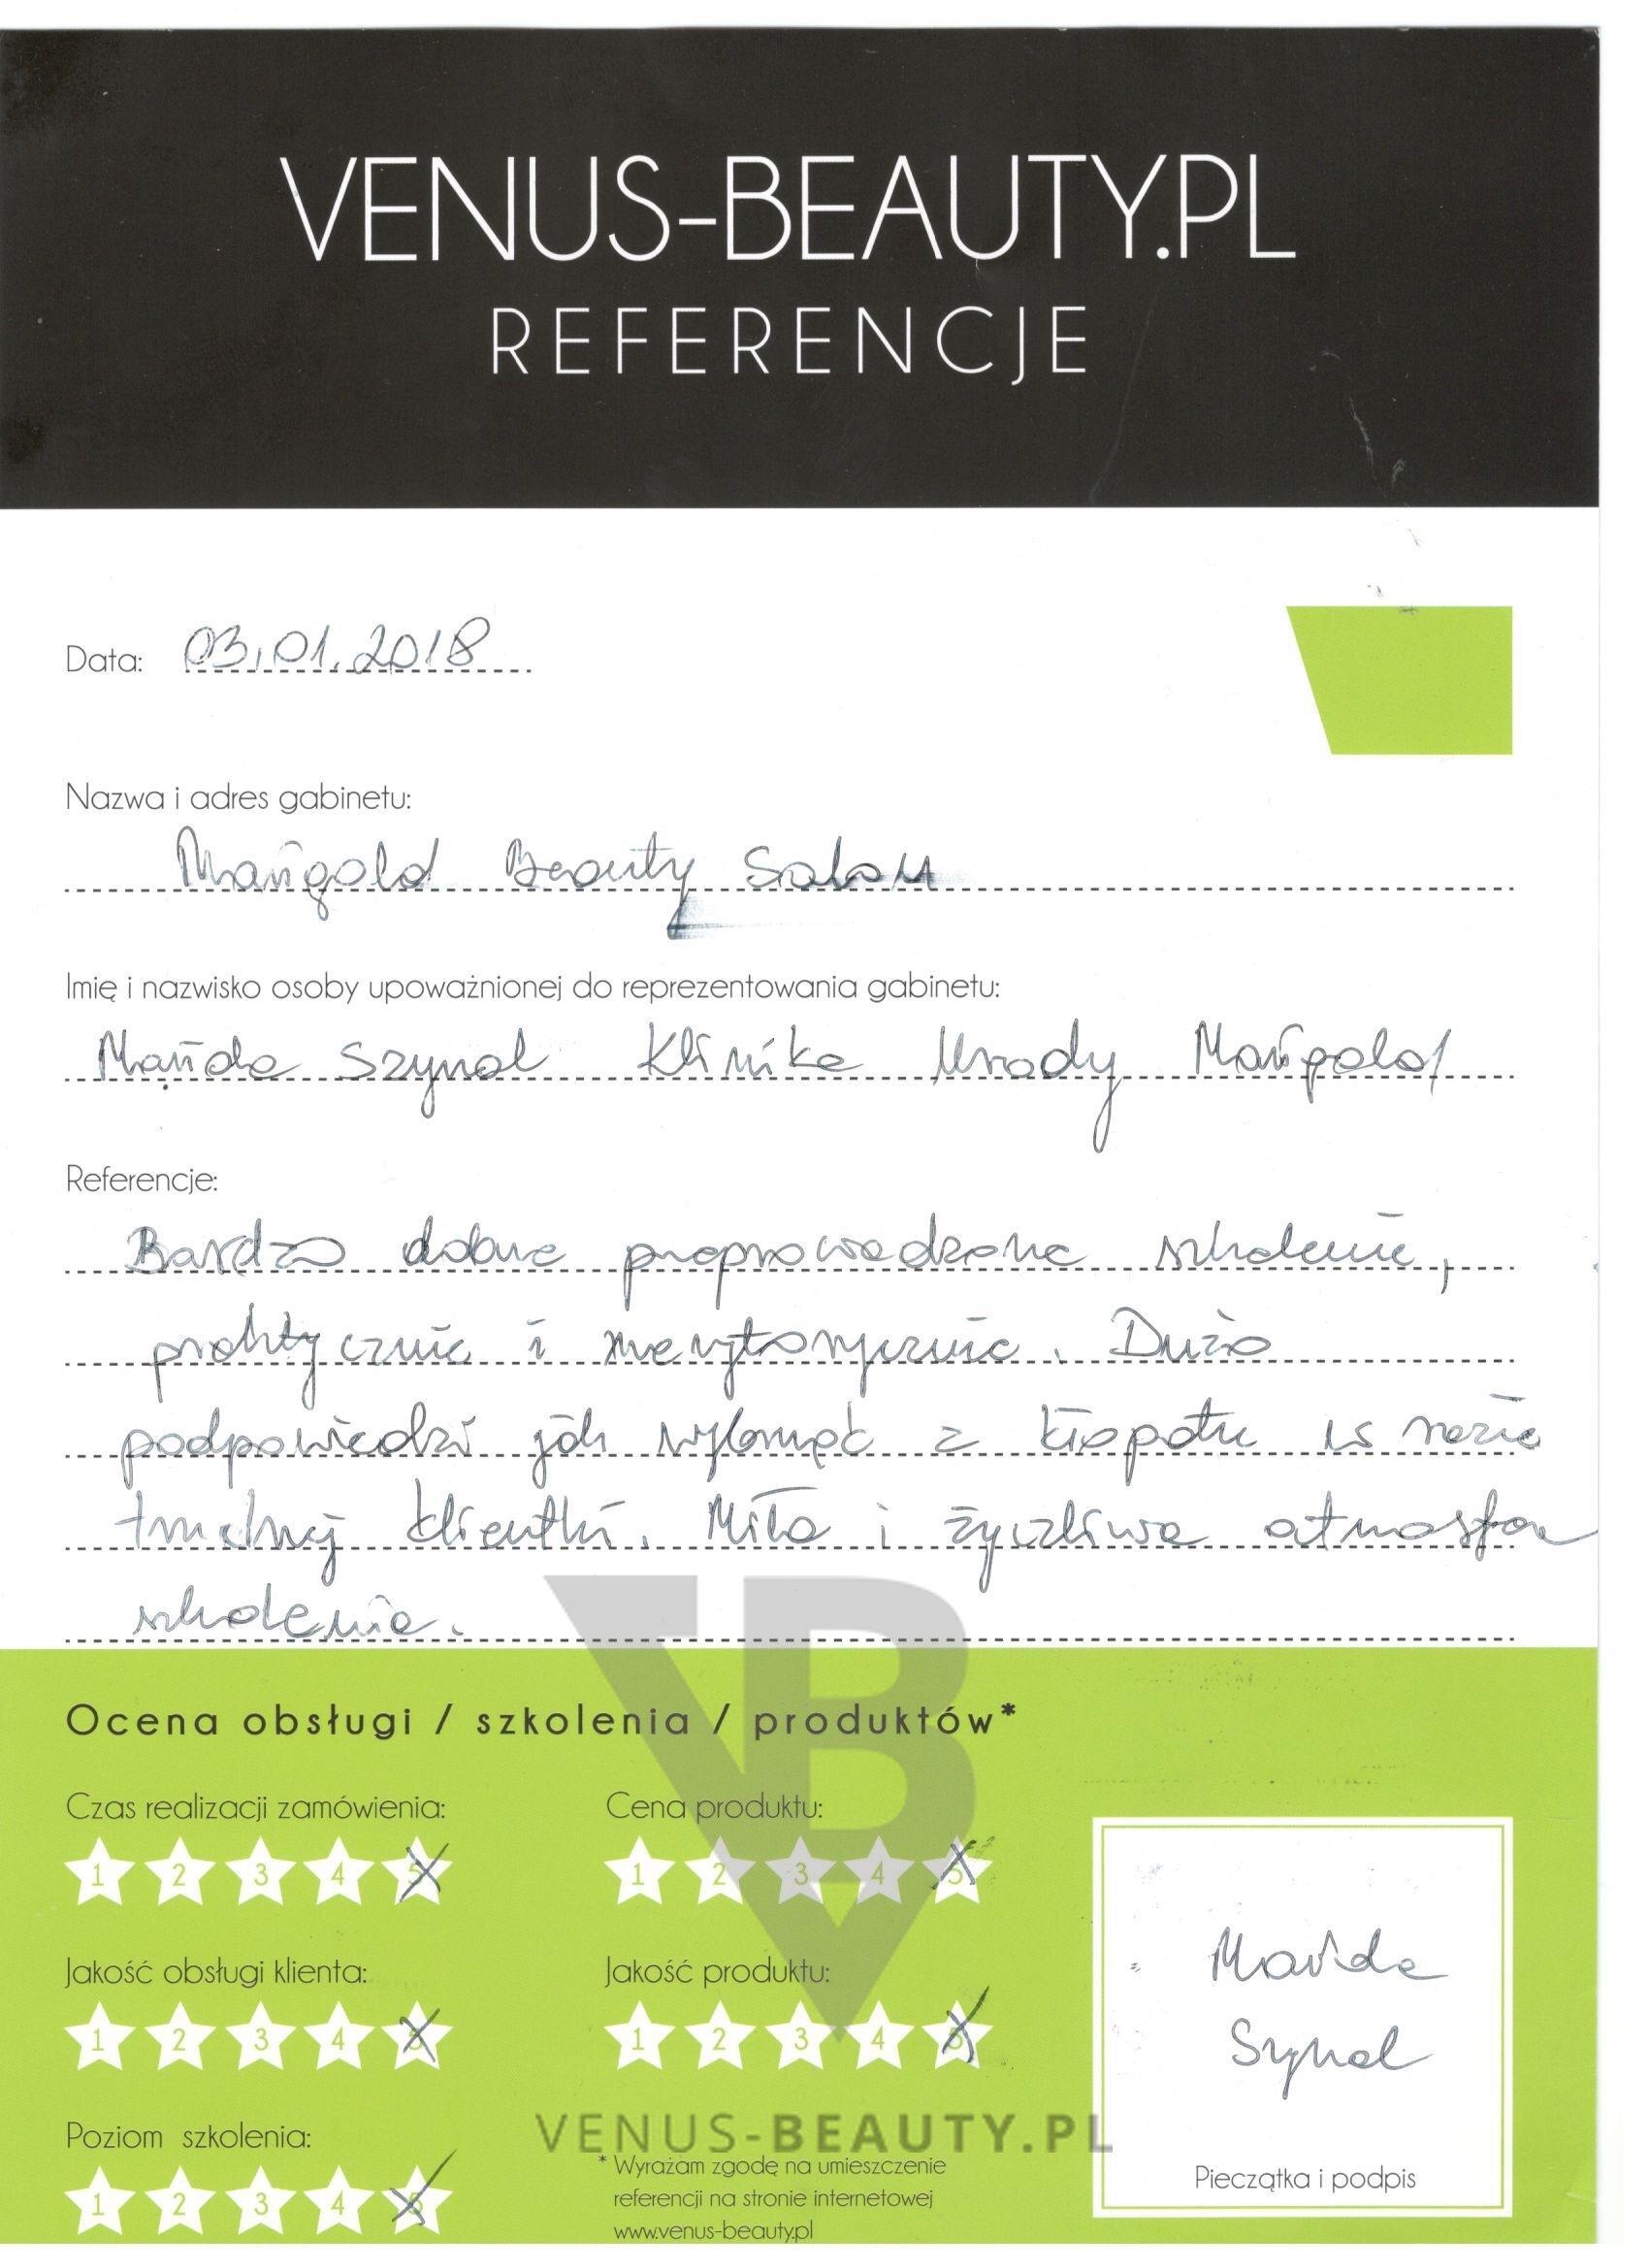 VENUS-BEAUTY.PL
REFERENCJE
Data: 03.01.2018
Nazwa i adres gabinetu:
Marigold Beauty Salon
Imię i nazwisko osoby upoważnionej do reprezentowania gabinetu:
Mariola Szynol Klinika Urody Marigold
Referencje:
Bardzo dobrze przeprowadzone szkolenie,
praktycznie i merytorycznie. Dużo
podpowiedzi jak wybrnąć z kłopotu w razie
trudnej klientki. Miła i życzliwa atmosfera
szkolenia.
Ocena obsługi / szkolenia / produktów*
Czas realizacji zamówienia: Cena produktu:
1 2 3 4 5 1 2 3 4 5
Jakość obsługi klienta: Jakość produktu:
1 2 3 4 5 1 2 3 4 5
Mariola
Szynol
Poziom szkolenia:
1 2 3 4 5
VB
VENUS-BEAUTY.PL
* Wyrażam zgodę na umieszczenie
referencji na stronie internetowej
www.venus-beauty.pl
Pieczątka i podpis